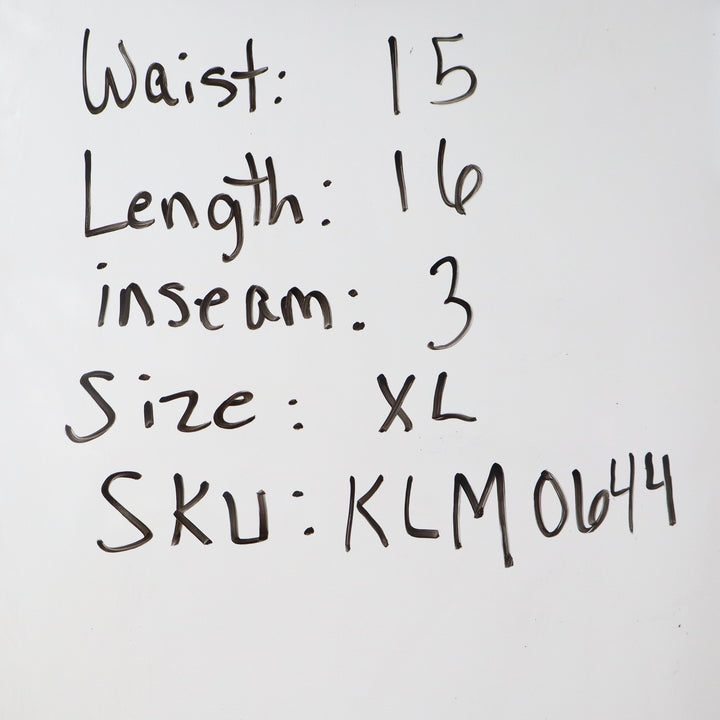 Waist: 15
Length: 16
inseam: 3
Size: XL
SKU: KLM0644